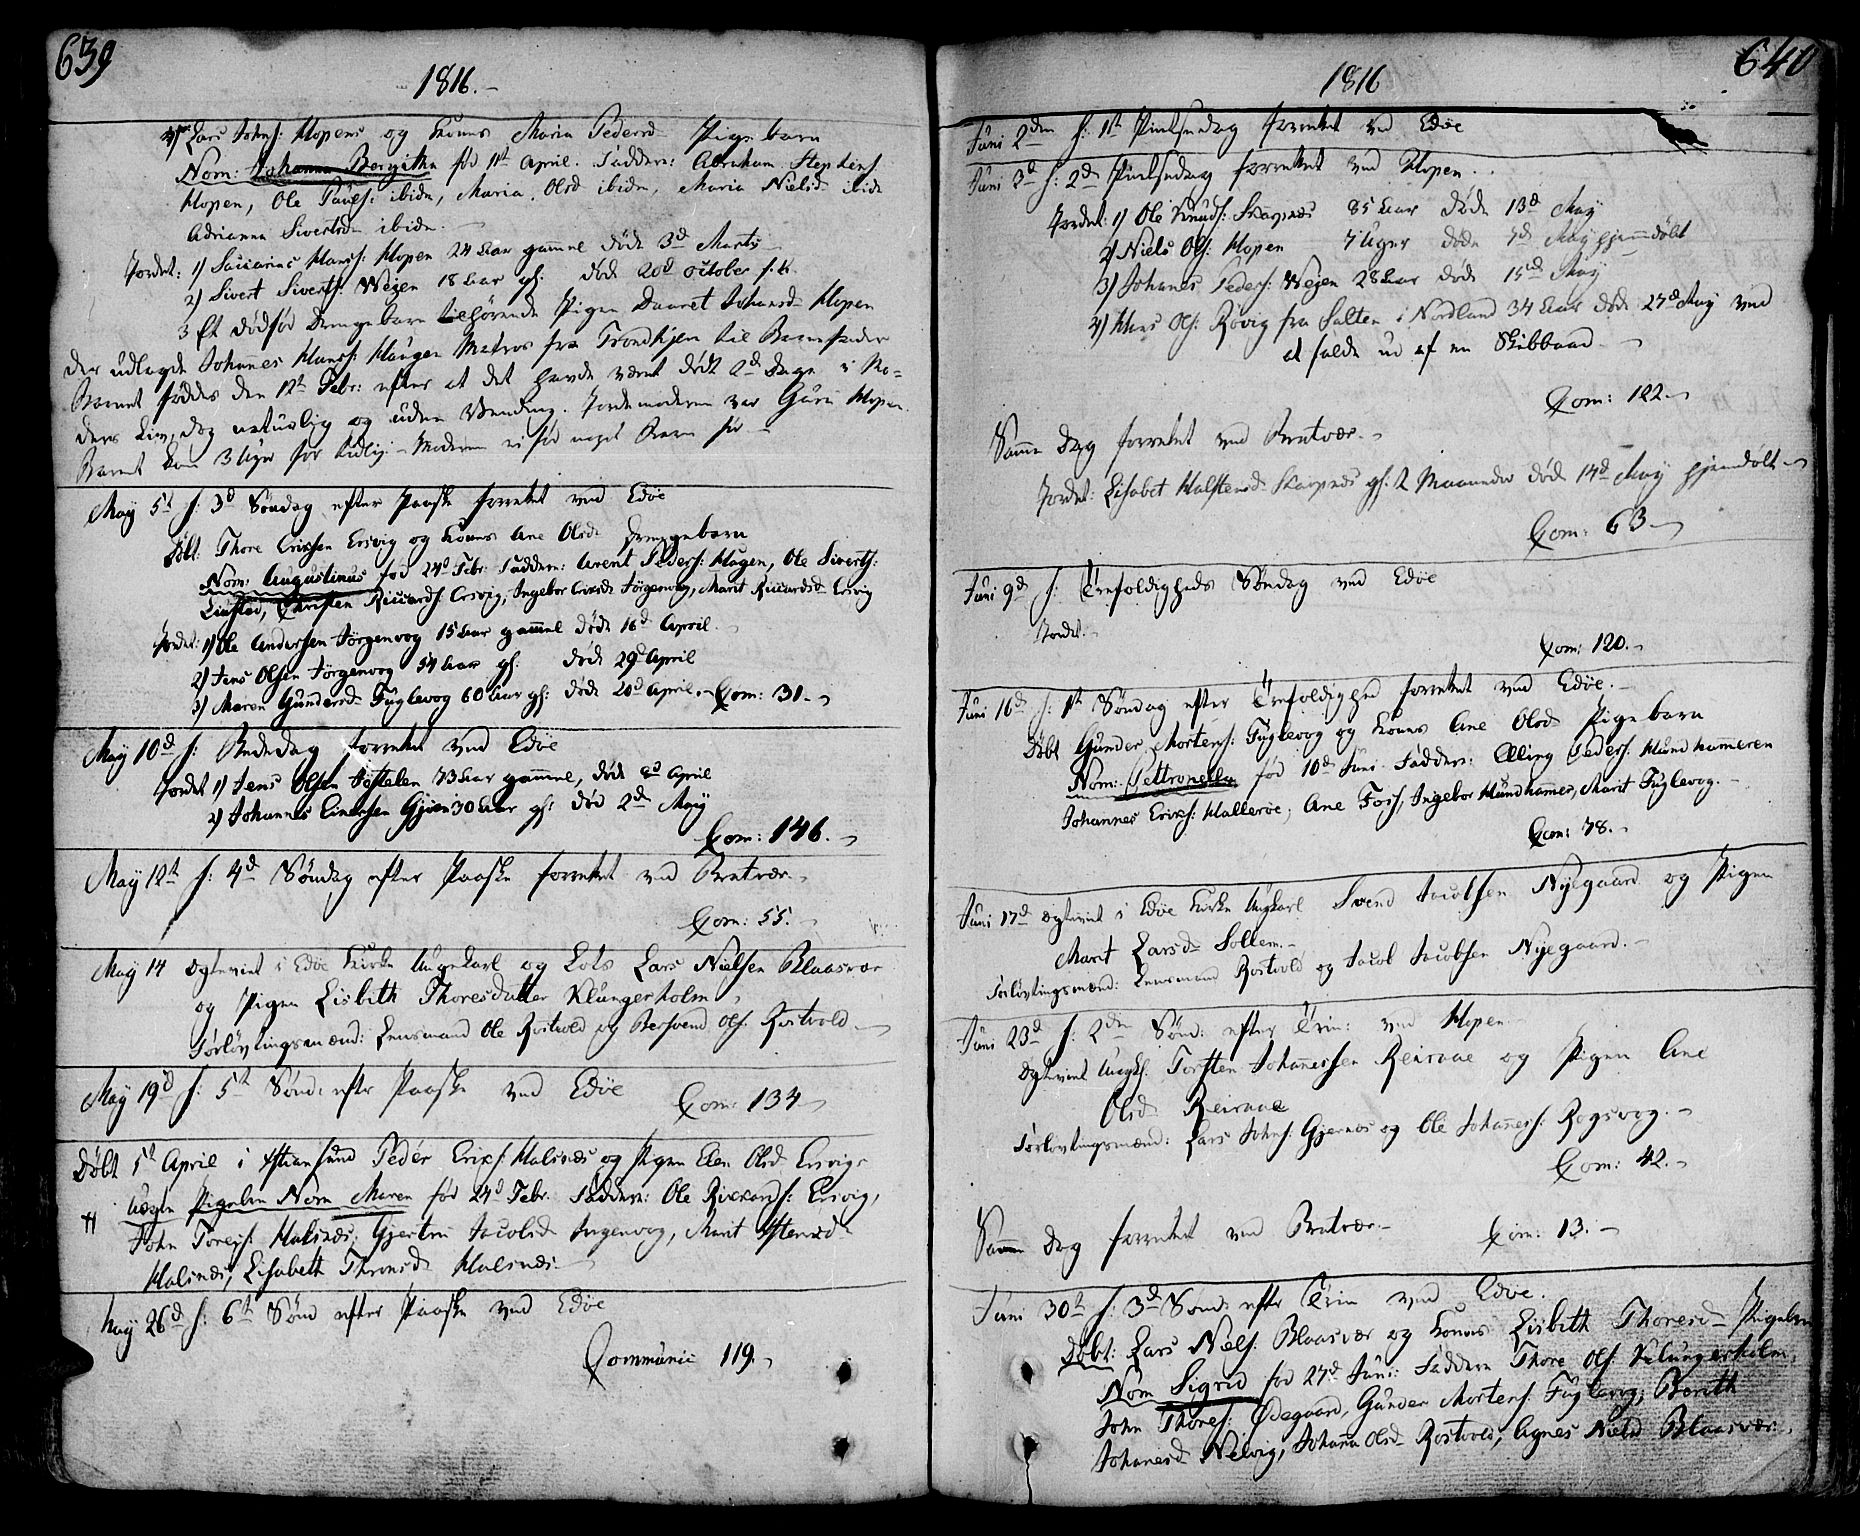 639
1816.
4) Lars Johns: Hopens og Kones Maria Pedersd Pige barn
Nom: Johanna Bergitha fød 11t April. Faddere: Abraham Stephens:
Hopen, Ole Pauls: ibidn, Maria Olsd ibidn, Maria Nielsd ibidn
Adrianna Sivertsd ibidn.
Jordet: 1) Saccarias Hanss: Hopen 24 Aar gammel døde 3d Marts
2) Sivert Siverts: Wejen 18 Aar gl: døde 20d october f: A:
3 Et dødfød Drengebarn tilhørende Pigen Daaret Johansd Hopen
der udlagde Johannes Hanss: Haugen Matros fra Trondhjem til Barnefader
Barnet fødtes den 12te Febr: efter at det havde været dødt 2de Dage i Mo-
ders Liv, dog naturlig og uden Vending. Jordemoderen var Guru Hopen.
Barnet kom 3 Uger for tidlig. Moderen ei fød noget Barn før
May 5t f: 3d Søndag efter Paaske forrettet ved Edøe
Døbt Thore Erichsen Ersvig og Kones Ane Olsd Drengebarn
Nom: Augustinus fød 24d Febr: Faddere: Arent Peders: Hagen, Ole Siverts:
Christen Riccards: Ersvig, Ingebor Ericsd Jörgenvog, Marit Riccardsd Ersvig
Jordet: 1) Ole Andersen Jörgenvog 15 Aar gammel døde 16d April.
2) Jens Olsen Jörgenvog 54 Aar gl: døde 29d April
3) Maren Gundersd Fuglevog 60 Aar gl: døde 20d April. Com: 31.
May 10d f: Bededag forrettet ved Edöe
Jordet 1) Jens Olsen 73 Aar gammel, døde 8d April
2) Johannes Einersen Gjøen 30 Aar gl: død 2de May
Com: 146.
May 12te f: 4de Søndag efter Paaske forrettet ved Bratvær.
Com: 55.
May 14 Ægteviet i Edøe Kirke Ungekarl og Lots Lars Nielsen Blaasvær
og Pigen Lisbith Thoresdatter Klungerholm
Forlovtingsmænd: Lensmand Ole Rostvold og Bersvend Ols: Rostvold.
May 19d f: 5te Sønd: efter Paaske ved Edöe Com: 134
Døbt 5t April i Xstiansund Peder Erics: Halsnæs og Pigen Elen Olsd Ersvigs
H uægte Pigebn Nom Maren fød 24d Febr. Faddere: Ole Rickards: Ersvig,
John Tores: Halsnæs, Gjertru Jacobsd Jörgenvog, Marit Estensd
Halsnæs, Lisabeth Thoresd Halsnæs
May 26d f: 6te Sønd efter Paaske ved Edöe
Communic 119.
640
1816
Juni 2den f: 1t Pintsedag forrettet ved Edöe
Juni 3d f: 2den Pintsedag forrettet ved Hopen.
Jordet: 1) Ole Knuds: Skarpnæs 85 Aar døde 13d May
2) Niels Ols: Hopen 7 Uger døde 7d May hjemdøbt
3) Johanes Peders: Wejen 28 Aar døde 15d May
4) Hans Ols: Rövig fra Salten i Nordland 34 Aar døde 27d May ved
at falde ud af en Skibbaad
Com: 122.
Samme dag forrettet ved Bratvær.
Jordet: Lisabet Halstensd Skarpnæs gl: 2 Maaneder død 14d May hjemdøbt
Com: 63
Juni 9d f: Trefoldigheds Søndag ved Edöe
Jordet.
Com: 120.
Juni 16d f: 1te Søndag efter Trefoldighed forrettet ved Edöe.
Døbt Gunder Mortens: Fuglevog og Kones Ane Olsd Pigebarn
Nom: Pettronella fød 10d Juni Faddere: Elling Peders: Hundhammeren
Johannes Erics: Halleröe, Ane Foss, Ingebor Hundhammer, Marit Fuglevog.
Com: 78.
Juni 17d Ægteviet i Edøe Kirke Ungkarl Svend Jacobsen Nyegaard og Pigen
Marit Larsd Sollem.
Forlovtingsmænd: Lensmand Rostvold og Jacob Jacobsen Nyegaard.
Juni 23d f: 2den Sønd: efter Trin: ved Hopen
Ægteviet Ungk: Torsten Johannessen Reiraae og Pigen Ane
Olsd Reiraae
Forlovtingsmænd: Lars Johns: Gjernæs og Ole Johaness: Rogsvog.
Com: 42.
Samme dag forrettet ved Bratvær. Com: 13.
Juni 30te f: 3d Sønd: efter Trin ved Edöe.
Døbt: Lars Niels: Blaasvær og Kones Lisbith Thoresd Pigebn
Nom Sigrid fød 27d Juni Faddere Thore Ols: Klungerholm,
John Thores: Ødegaard, Gunder Mortens: Fuglevog, Bereth
Johanesd Nelvig, Johanna Olsd Rostvold, Agnes Nielsd Blaasvær.